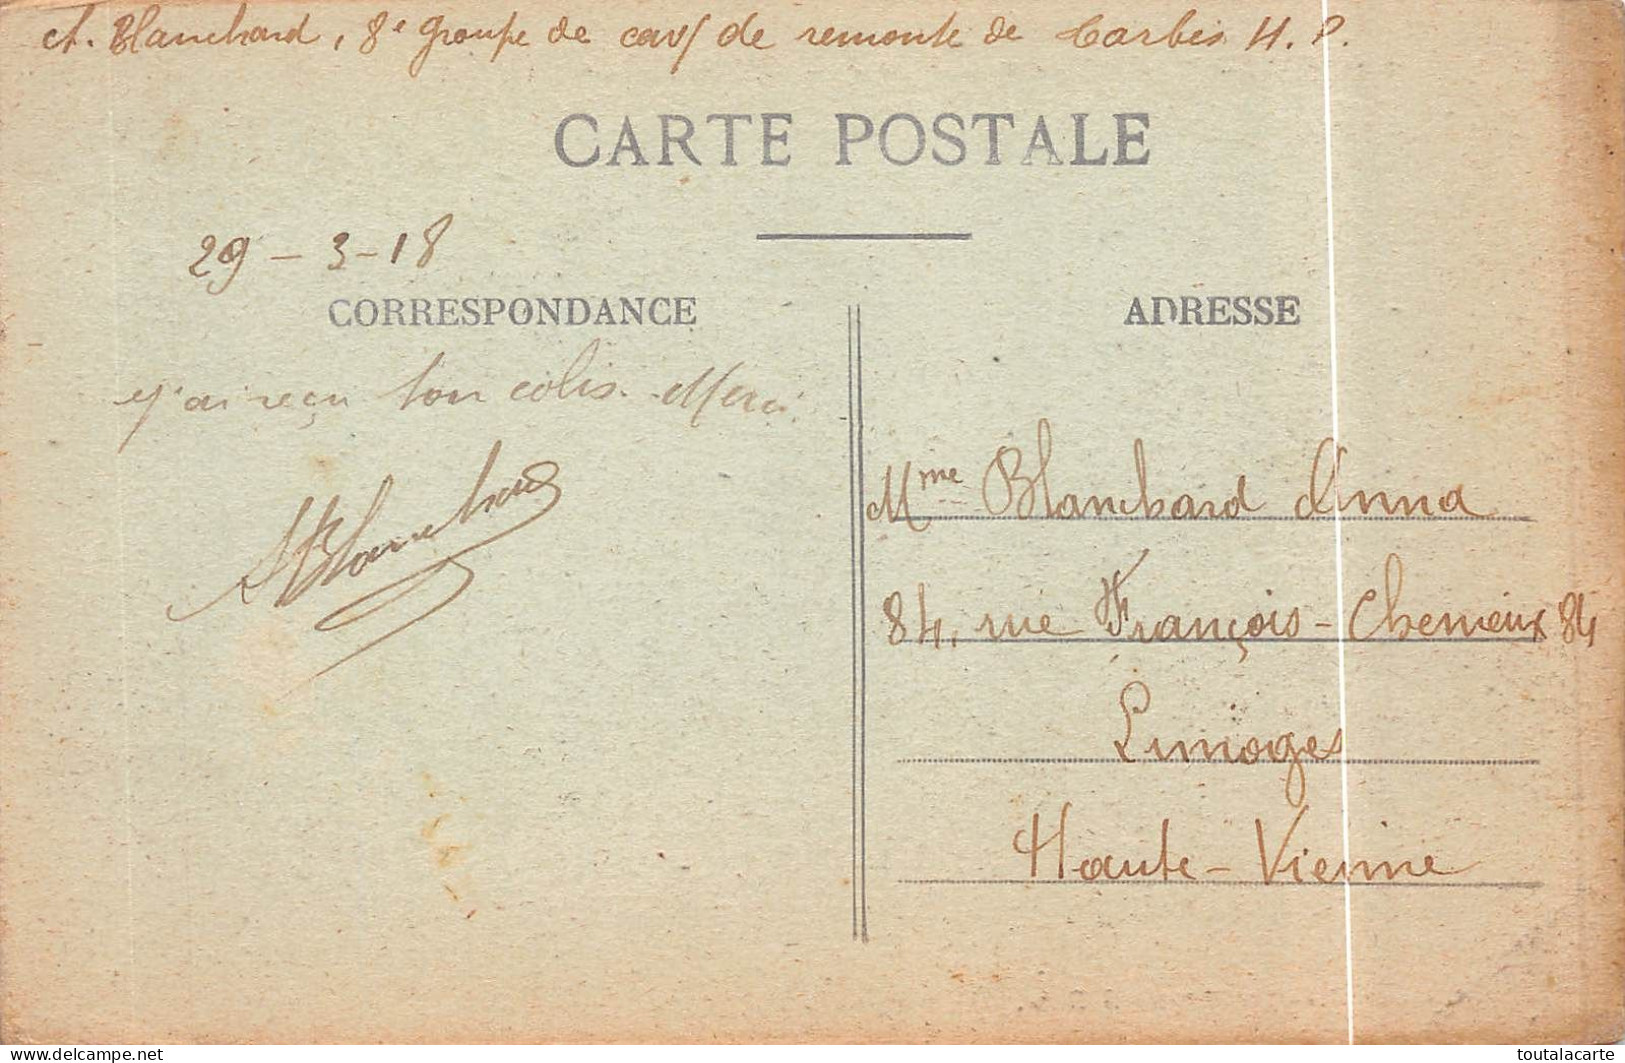 A. Blanchard, 8e groupe de cav/ de remonte de Tarbes H. P.
CARTE POSTALE
29 - 3 - 18
CORRESPONDANCE
ADRESSE
J'ai reçu ton colis. Merci.
ABlanchard
Mme Blanchard Anna
84, rue François-Chenieux 84
Limoges
Haute-Vienne
Delcampe.net
toutalacarte